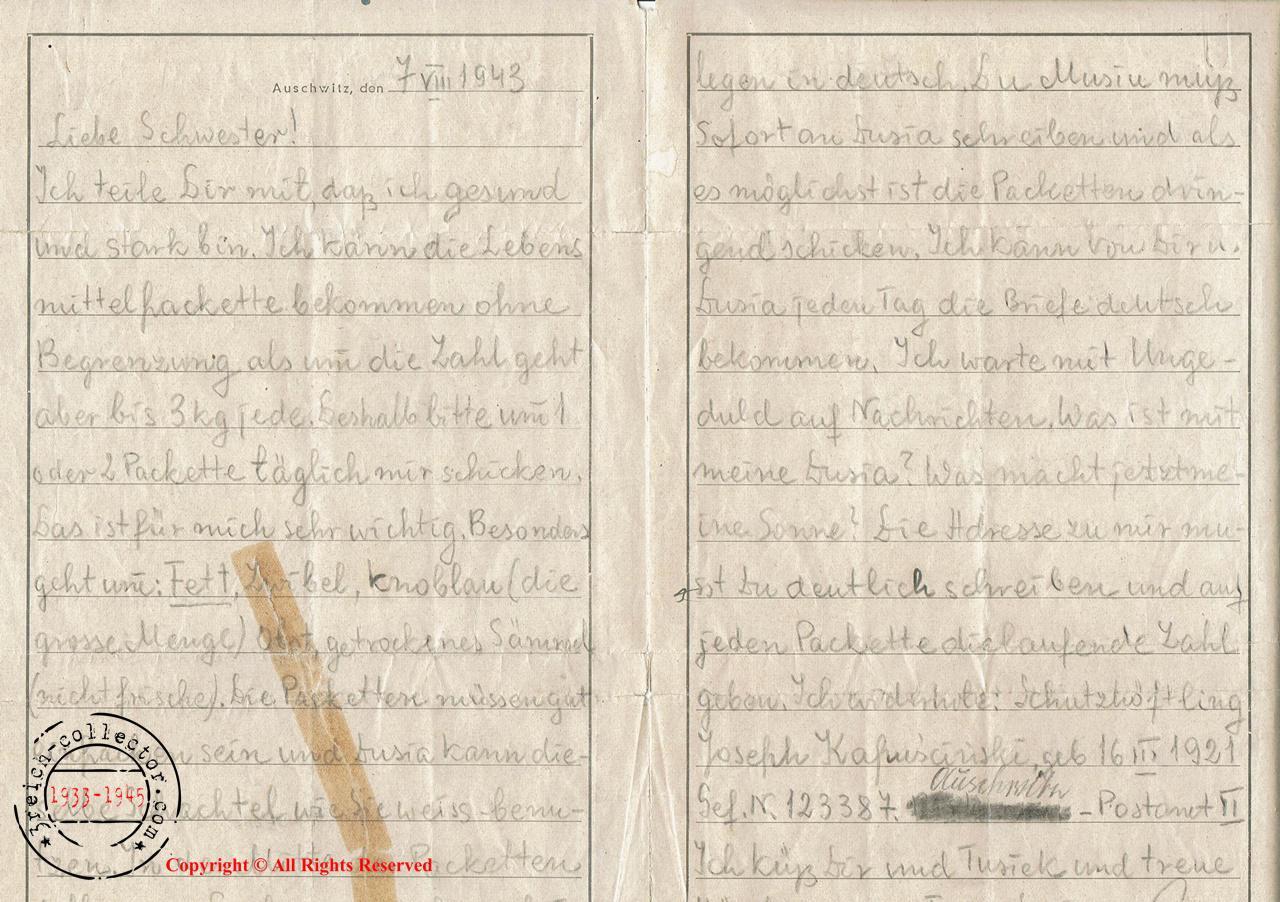 Auschwitz, den 7 VIII 1943
Liebe Schwester!
Ich teile Dir mit, daß ich gesund
und stark bin. Ich känn die Lebens
mittelpackette bekommen ohne
Begrenzung als um die Zahl geht
aber bis 3 kg jede. Deshalb bitte um 1
oder 2 Packette täglich mir schicken.
Das ist für mich sehr wichtig. Besonders
geht um: Fett, Zwibel, Knoblau (die
grosse Menge) Obst, getrockenes Sämmel
(nicht frische). Die Packetten müssen gut
sein und Dusia kann die-
wie Sie weiss benu-
tzen. Packetten
legen in deutsch. Du Musiu muß
Sofort an Dusia schreiben und als
es möglichst ist die Packetten drin-
gend schicken. Ich känn von Dir u.
Dusia jeden Tag die Briefe deutsch
bekommen. Ich warte mit Unge-
duld auf Nachrichten. Was ist mit
meine Dusia? Was macht jetzt me-
ine Sonne? Die Adresse zu mir mu-
sst Du deutlich schreiben und auf
jeden Packette die laufende Zahl
geben. Ich Schutzhäftling
Joseph Kapuściński, geb 16 III 1921
Gef. N. 123387. Auschwitz - Postamt II
Ich küß Dir und Tusiek und treue
3reich-collector.com
1933-1945
Copyright © All Rights Reserved